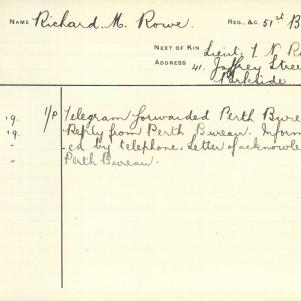 NAME Richard M. Rowe. REG. &C. 51st B
NEXT OF KIN Lieut. T. N. R
ADDRESS 41. Jaffrey Stree
Parkside
19. 1/P Telegram forwarded Perth Bure
19. Reply from Perth Bureau. Inform
" ed by telephone. Letter of acknowle
" Perth Bureau.